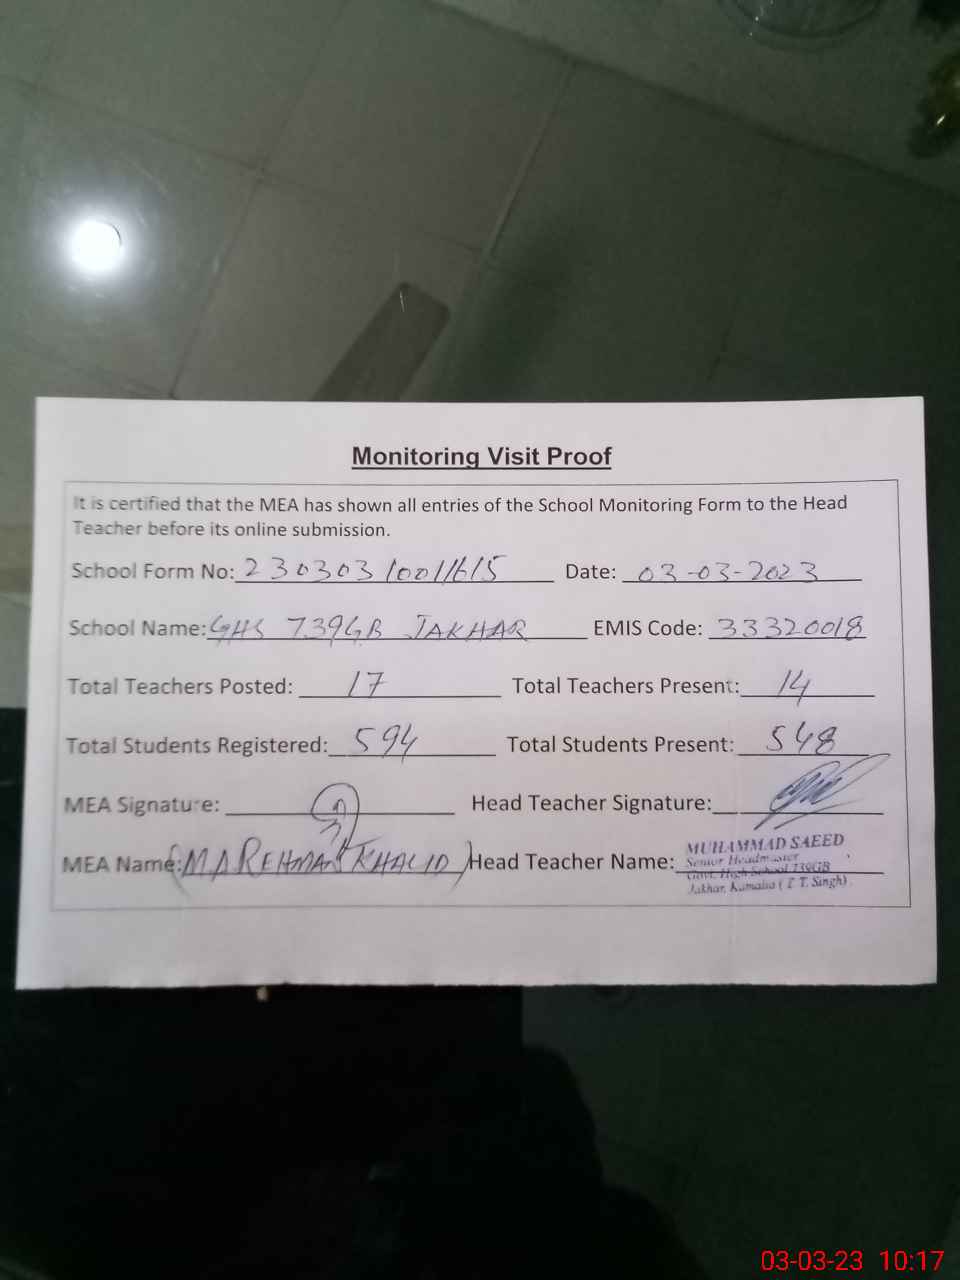 Monitoring Visit Proof
It is certified that the MEA has shown all entries of the School Monitoring Form to the Head
Teacher before its online submission.
School Form No: 23030310011615 Date: 03-03-2023
School Name: GHS 739GB JAKHAR EMIS Code: 33320018
Total Teachers Posted: 17 Total Teachers Present: 14
Total Students Registered: 594 Total Students Present: 548
MEA Signature: Head Teacher Signature:
MEA Name: (M A REHMAN KHALID) Head Teacher Name: MUHAMMAD SAEED
Senior Headmaster
Govt. High School 739GB
Jakhar, Kamalia ( T. T. Singh)
03-03-23 10:17